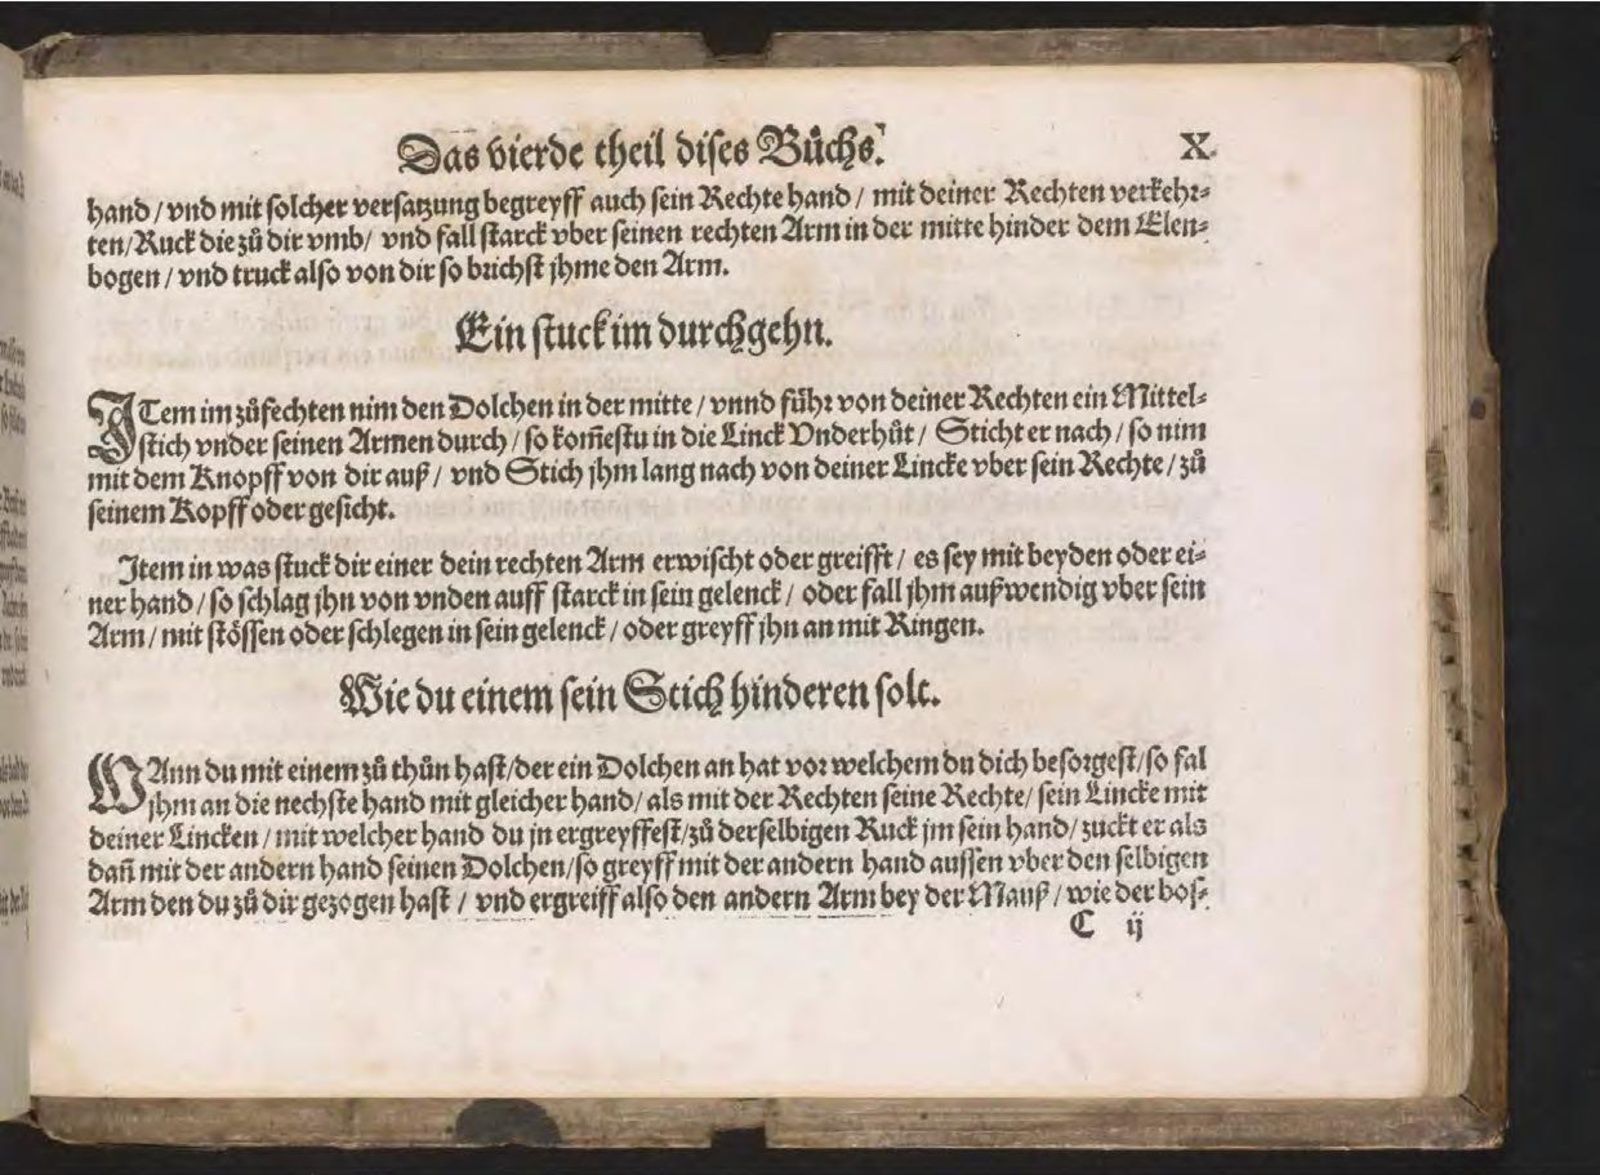 Das vierde theil dises Bůchs.
X.
hand / vnd mit solcher versatzung begreyff auch sein Rechte hand / mit deiner Rechten verkehr-
ten / Ruck die zů dir vmb / vnd fall starck vber seinen rechten Arm in der mitte hinder dem Elen-
bogen / vnd truck also von dir so brichst jhme den Arm.
Ein stuck im durchgehn.
ITem im zůfechten nim den Dolchen in der mitte / vnnd führ von deiner Rechten ein Mittel-
stich vnder seinen Armen durch / so kom̄estu in die Linck Vnderhůt / Sticht er nach / so nim
mit dem Knopff von dir auß / vnd Stich jhm lang nach von deiner Lincke vber sein Rechte / zů
seinem Kopff oder gesicht.
Item in was stuck dir einer dein rechten Arm erwischt oder greifft / es sey mit beyden oder ei-
ner hand / so schlag jhn von vnden auff starck in sein gelenck / oder fall jhm außwendig vber sein
Arm / mit stössen oder schlegen in sein gelenck / oder greyff jhn an mit Ringen.
Wie du einem sein Stich hinderen solt.
WAnn du mit einem zů thůn hast / der ein Dolchen an hat vor welchem du dich besorgest / so fal
jhm an die nechste hand mit gleicher hand / als mit der Rechten seine Rechte / sein Lincke mit
deiner Lincken / mit welcher hand du jn ergreyffest / zů derselbigen Ruck jm sein hand / zuckt er als
dañ mit der andern hand seinen Dolchen / so greyff mit der andern hand aussen vber den selbigen
Arm den du zů dir gezogen hast / vnd ergreiff also den andern Arm bey der Mauß / wie der bos-
C ij